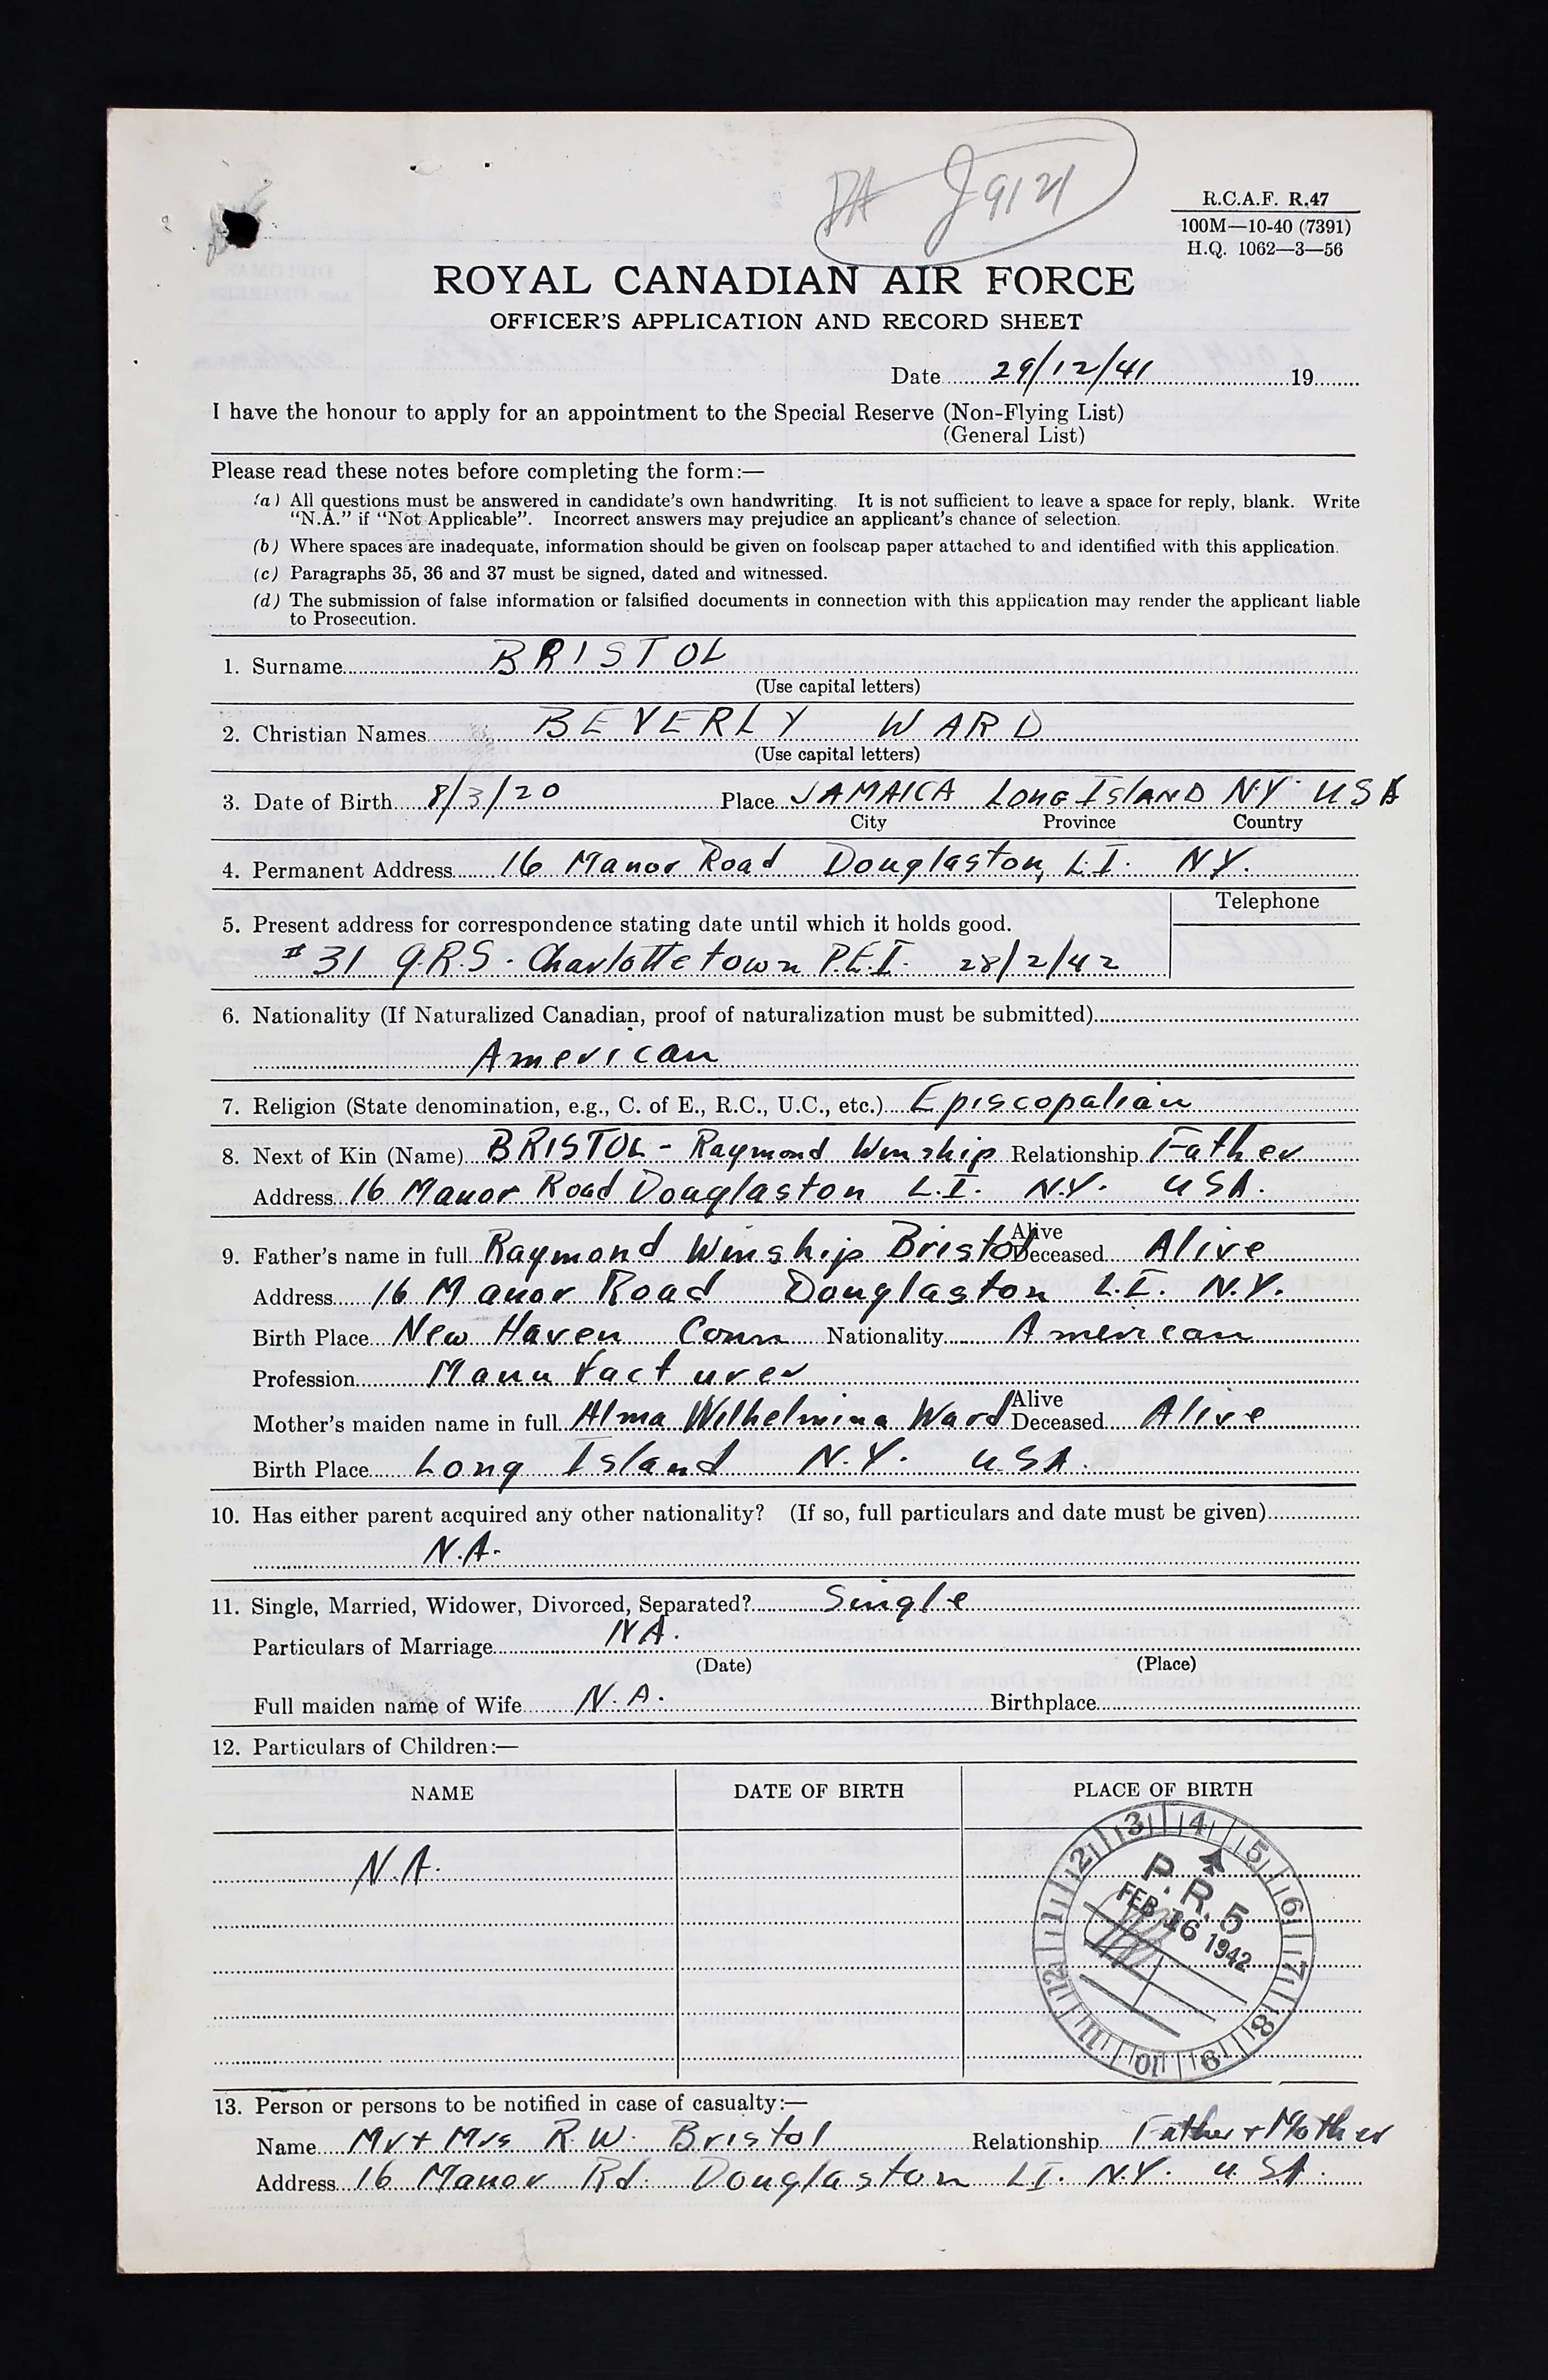 PA J9121
R.C.A.F. R.47
100M—10-40 (7391)
H.Q. 1062—3—56
ROYAL CANADIAN AIR FORCE
OFFICER'S APPLICATION AND RECORD SHEET
Date 29/12/41 19
I have the honour to apply for an appointment to the Special Reserve (Non-Flying List)
(General List)
Please read these notes before completing the form:—
(a) All questions must be answered in candidate's own handwriting. It is not sufficient to leave a space for reply, blank. Write
"N.A." if "Not Applicable". Incorrect answers may prejudice an applicant's chance of selection.
(b) Where spaces are inadequate, information should be given on foolscap paper attached to and identified with this application.
(c) Paragraphs 35, 36 and 37 must be signed, dated and witnessed.
(d) The submission of false information or falsified documents in connection with this application may render the applicant liable
to Prosecution.
1. Surname BRISTOL
(Use capital letters)
2. Christian Names BEVERLY WARD
(Use capital letters)
3. Date of Birth 8/3/20 Place JAMAICA LONG ISLAND N.Y. USA
City Province Country
4. Permanent Address 16 Manor Road Douglaston, L.I. N.Y.
Telephone
5. Present address for correspondence stating date until which it holds good.
#31 G.R.S. Charlottetown P.E.I. 28/2/42
6. Nationality (If Naturalized Canadian, proof of naturalization must be submitted)
American
7. Religion (State denomination, e.g., C. of E., R.C., U.C., etc.) Episcopalian
8. Next of Kin (Name) BRISTOL - Raymond Winship Relationship Father
Address 16 Manor Road Douglaston L.I. N.Y. USA.
9. Father's name in full Raymond Winship Bristol Alive Deceased Alive
Address 16 Manor Road Douglaston L.I. N.Y.
Birth Place New Haven Conn Nationality American
Profession Manufacturer
Mother's maiden name in full Alma Wilhelmina Ward Alive Deceased Alive
Birth Place Long Island N.Y. USA.
10. Has either parent acquired any other nationality? (If so, full particulars and date must be given)
N.A.
11. Single, Married, Widower, Divorced, Separated? Single
Particulars of Marriage N.A.
(Date) (Place)
Full maiden name of Wife N.A. Birthplace
12. Particulars of Children:—
NAME DATE OF BIRTH PLACE OF BIRTH
N.A.
1 2 3 4 5 6 7 8 9 10 11 12
P.R.5
FEB 16 1942
13. Person or persons to be notified in case of casualty:—
Name Mr + Mrs R.W. Bristol Relationship Father + Mother
Address 16 Manor Rd. Douglaston L.I. N.Y. U.S.A.